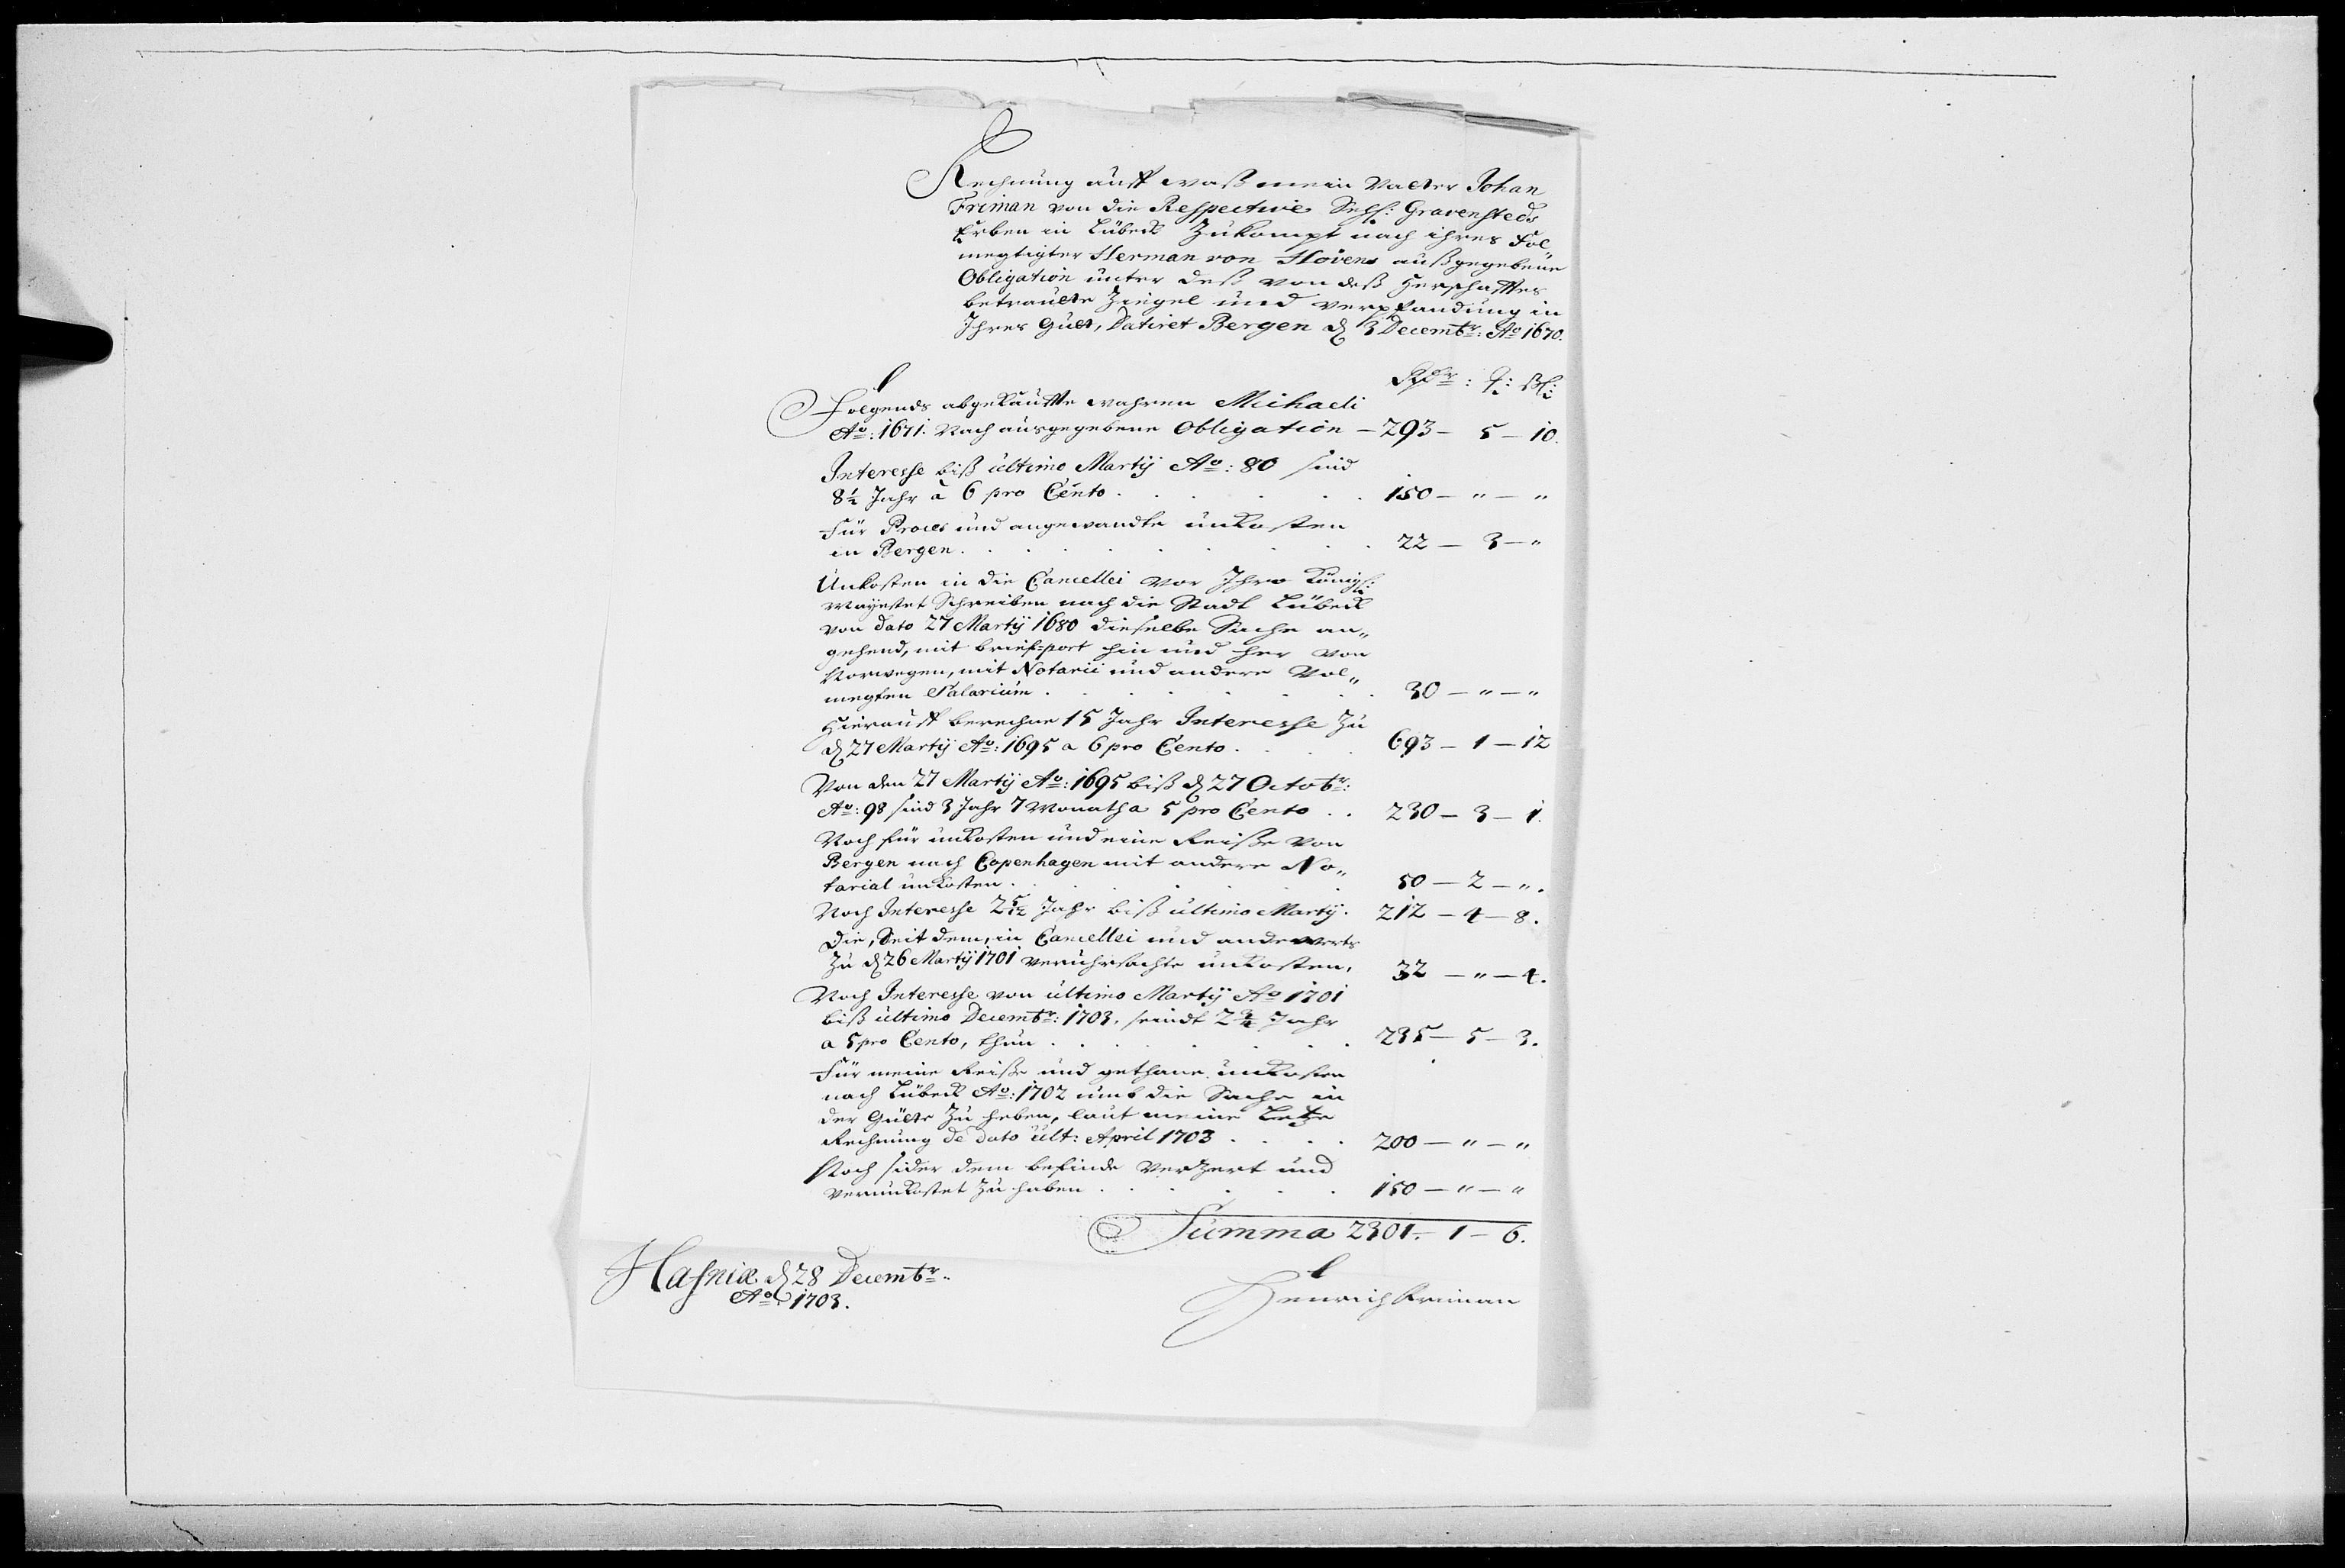 Rechnung auff waß mein Vatter Johan
Friman von die Respective Sehl: Gravensteds
Erben in Lübeck Zukompt nach ihres Fol„
megtigter Herman von Hövens außgegebene
Obligation unter deß von deß Herschafftes
betraute Ziegel und verpfandung in
Ihres Guet, Datiret Bergen d 3 Decembr: Ao 1670.
Rdr: : ßl:
Folgends abgekauffte wahren Michaeli
Ao: 1671. Nach ausgegebene Obligation – 293 – 5 – 10.
Interesse biß ultimo Martij Ao: 80 sind
8½ Jahr à 6 pro Cento . . . . 150 – „ – „
Für Proces und angewandte unkosten
in Bergen . . . . . . 22 – 3 – „
Unkosten in die Cancellei vor Ihro Königl:
Mayestet Schreiben nach die Stadt Lübeck
von dato 27 Martij 1680 dieselbe Sache an„
gehend, mit brief-port hin und her von
Norwegen, mit Notarii und andere Vol„
megten Salarium . . . . . . 30 – „ – „
Hierauff berechne 15 Jahr Interesse Zu
d 27 Martij Ao: 1695 a 6 pro Cento . . . 693 – 1 – 12
Von den 27 Martij Ao: 1695 biß d 27 Octobr:
Ao: 98 sind 3 Jahr 7 Monath a 5 pro Cento . . 230 – 3 – 1.
Noch für unkosten und eine Reiße von
Bergen nach Copenhagen mit andere No„
tarial unkosten . . . . . 50 – 2 – „.
Noch Interesse 2 5/12 Jahr biß ultimo Martij. 212 – 4 – 8.
Die, Seit dem, in Cancellei und anderwerts
Zu d 26 Martij 1701 verührsachte unkosten, 32 – „ – 4.
Noch Interesse von ultimo Martij Ao 1701
biß ultimo Decembr: 1703, seindt 2¾ Jahr
a 5 pro Cento, thun . . . . . . 235 – 5 – 3.
Für meine Reiße und gethane unkosten
nach Lübeck Ao: 1702 umb die Sache in
der Güete Zu heben, laut meine Letze
Rechnung de dato ult: April 1703 . . . . 200 – „ – „
Noch sider dem befinde verzert und
verunkostet Zu haben . . . . . . 150 – „ – „
Summa 2301. – 1 – 6.
Hafniæ d 28 Decembr.
Ao: 1703.
Henrich Friman